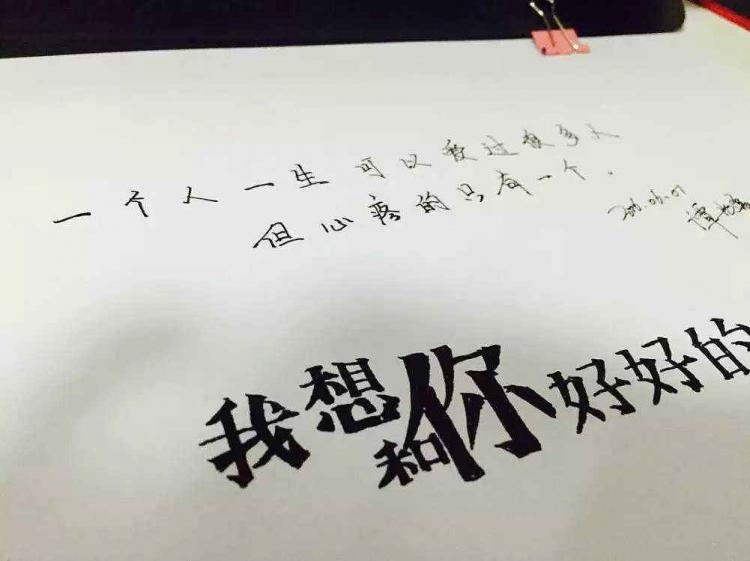 一个人一生可以爱过很多人
但心疼的只有一个.
2016.06.01
我想和你好好的